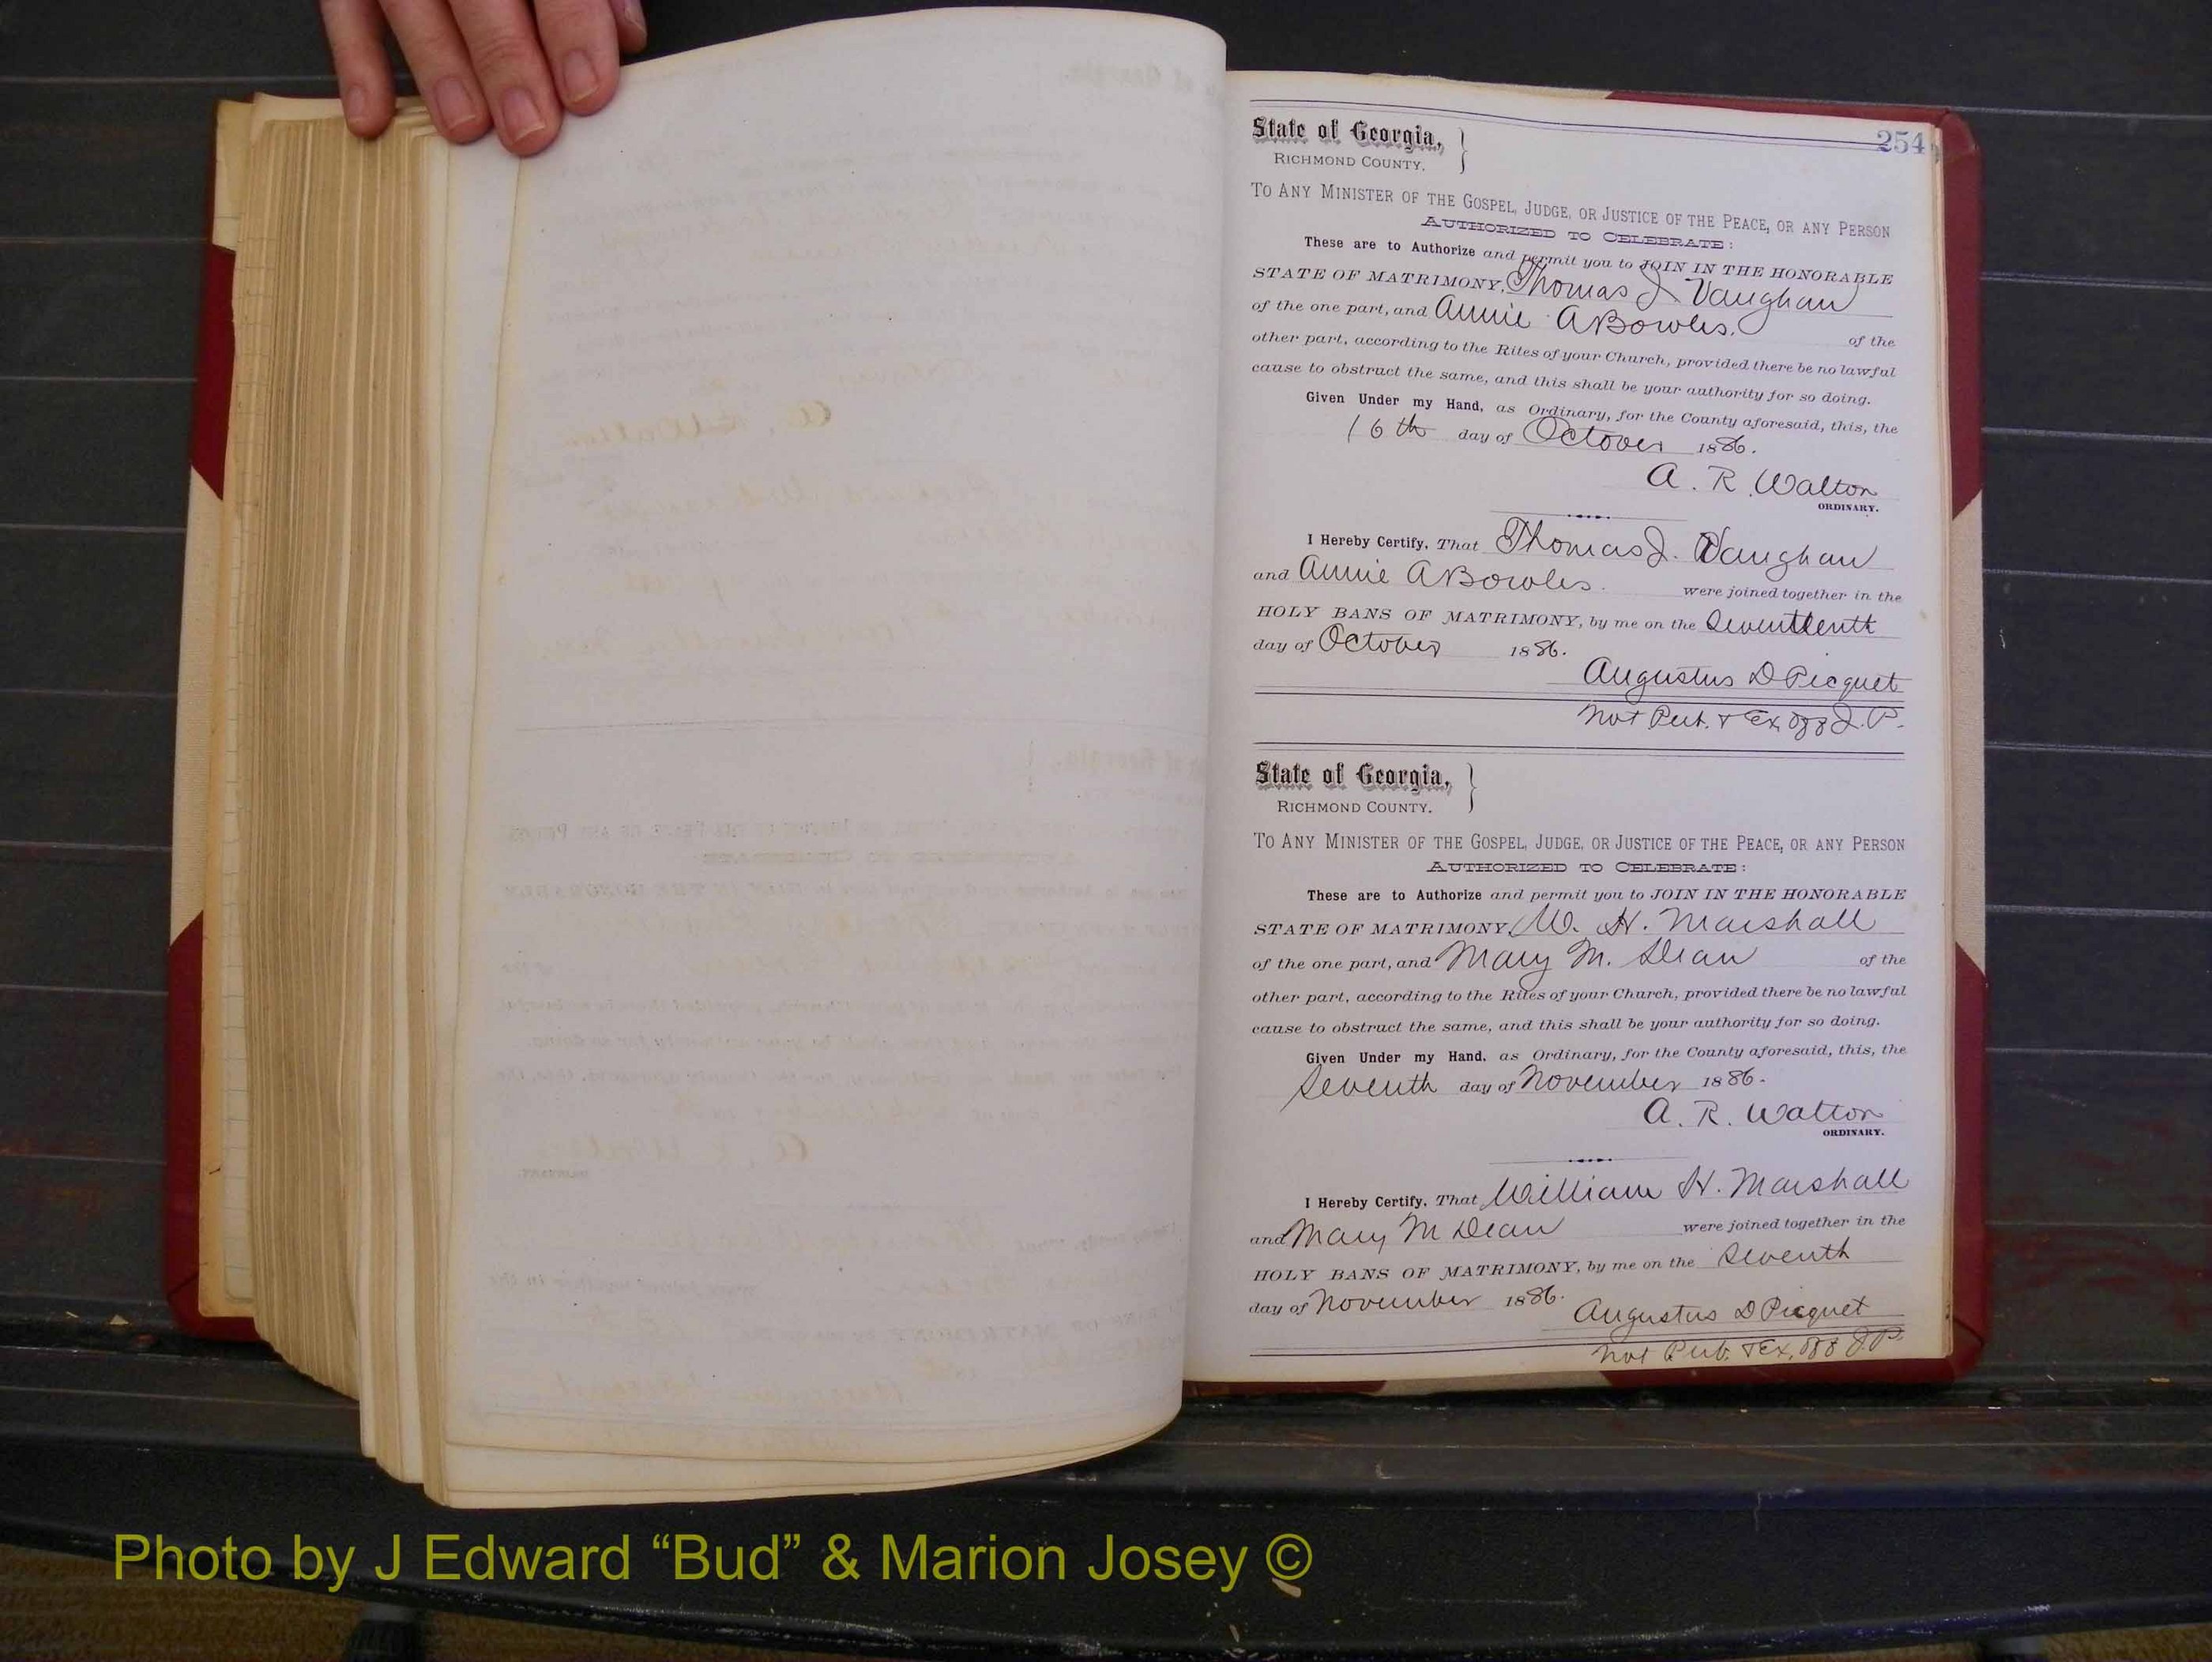 254
State of Georgia,
RICHMOND COUNTY.
TO ANY MINISTER OF THE GOSPEL, JUDGE, OR JUSTICE OF THE PEACE, OR ANY PERSON
AUTHORIZED TO CELEBRATE:
These are to Authorize and permit you to JOIN IN THE HONORABLE
STATE OF MATRIMONY, Thomas J Vaughan
of the one part, and Annie A Bowles. of the
other part, according to the Rites of your Church, provided there be no lawful
cause to obstruct the same, and this shall be your authority for so doing.
Given Under my Hand, as Ordinary, for the County aforesaid, this, the
16th day of October 1886.
A. R. Walton
ORDINARY.
I Hereby Certify, That Thomas J. Vaughan
and Annie A Bowles. were joined together in the
HOLY BANS OF MATRIMONY, by me on the Seventeenth
day of October 1886.
Augustus D Picquet
Not Pub. & Ex Off J. P.
State of Georgia,
RICHMOND COUNTY.
TO ANY MINISTER OF THE GOSPEL, JUDGE, OR JUSTICE OF THE PEACE, OR ANY PERSON
AUTHORIZED TO CELEBRATE:
These are to Authorize and permit you to JOIN IN THE HONORABLE
STATE OF MATRIMONY, W. H. Marshall
of the one part, and Mary M. Dean of the
other part, according to the Rites of your Church, provided there be no lawful
cause to obstruct the same, and this shall be your authority for so doing.
Given Under my Hand, as Ordinary, for the County aforesaid, this, the
Seventh day of November 1886.
A. R. Walton
ORDINARY.
I Hereby Certify, That William H. Marshall
and Mary M Dean were joined together in the
HOLY BANS OF MATRIMONY, by me on the Seventh
day of November 1886.
Augustus D Picquet
Not Pub. & Ex. Off J. P.
Photo by J Edward “Bud” & Marion Josey ©